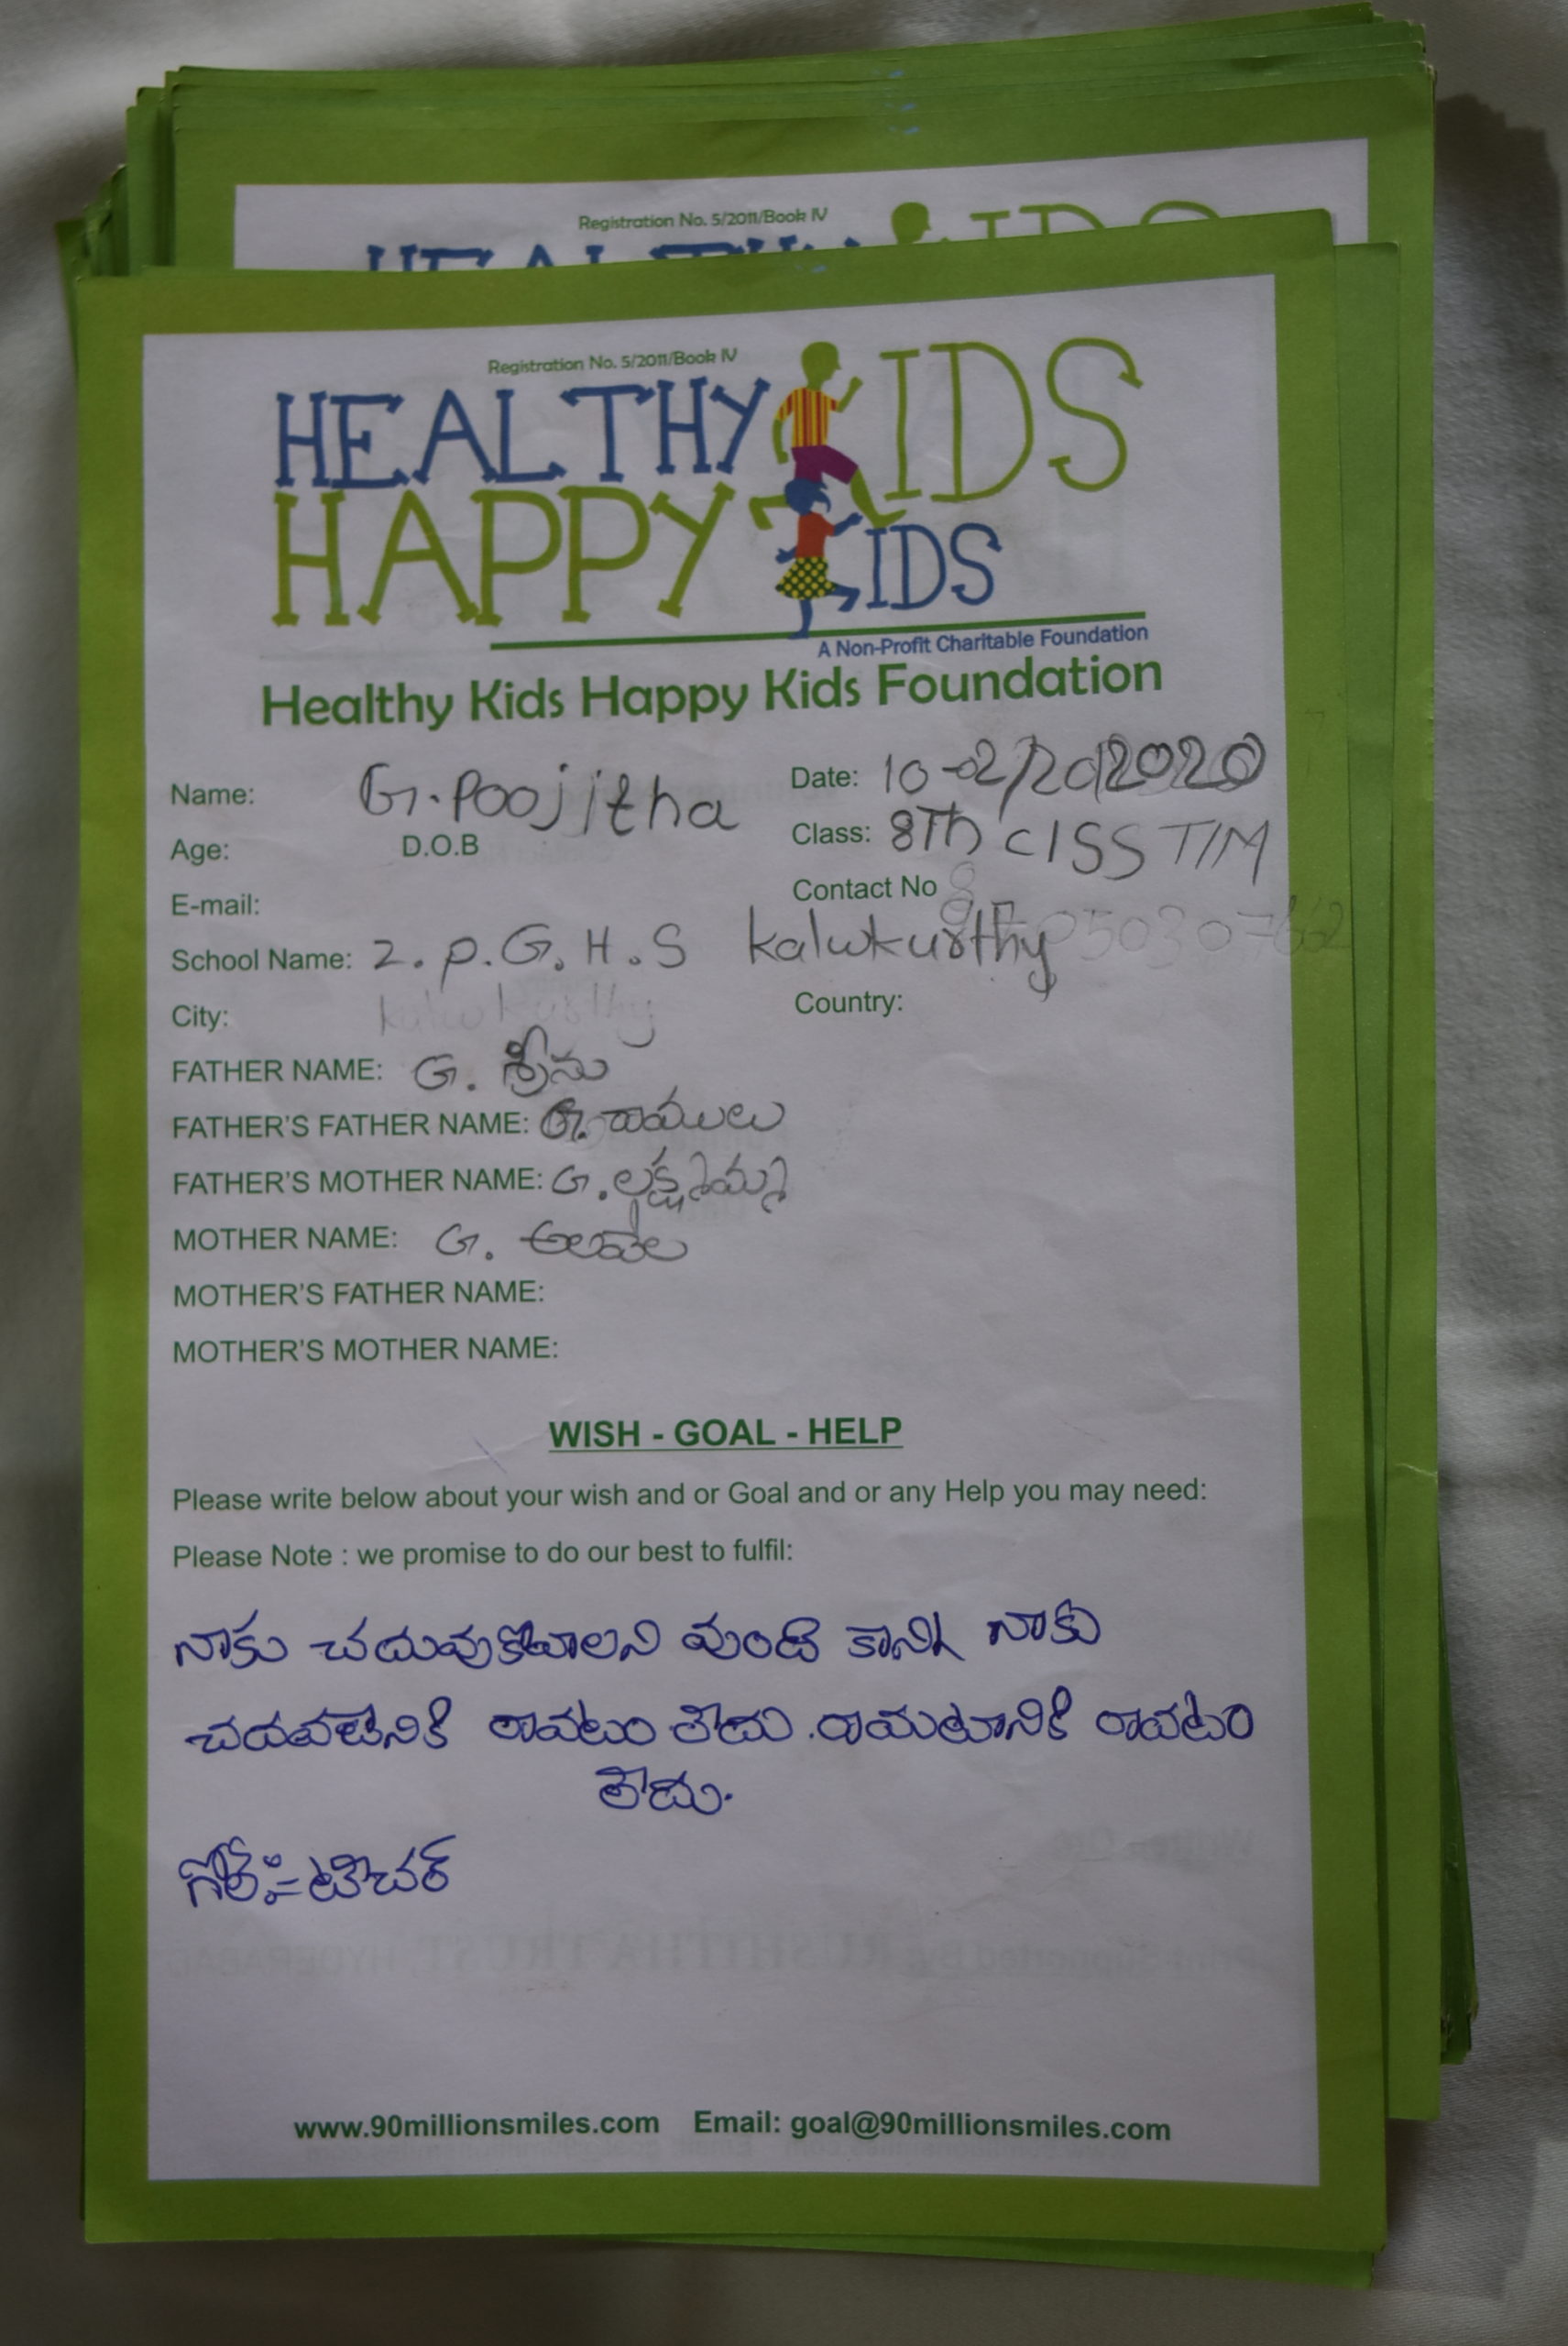 Registration No. 5/2011/Book IV
Registration No. 5/2011/Book IV
HEALTHY KIDS
HAPPY KIDS
A Non-Profit Charitable Foundation
Healthy Kids Happy Kids Foundation
Name: G. Poojitha Date: 10-02/2020
Age: D.O.B Class: 8Th clSS T/M
E-mail: Contact No
School Name: Z. P. G. H. S kalwkurthy
City: kalwkurthy Country:
FATHER NAME: G. శ్రీను
FATHER'S FATHER NAME: G. రాములు
FATHER'S MOTHER NAME: G. లక్ష్మమ్మ
MOTHER NAME: G. అలవేల
MOTHER'S FATHER NAME:
MOTHER'S MOTHER NAME:
WISH - GOAL - HELP
Please write below about your wish and or Goal and or any Help you may need:
Please Note : we promise to do our best to fulfil:
నాకు చదువుకోవాలని వుంది కాని నాకు
చదవటానికి రావటం లేదు. రాయటానికి రావటం
లేదు.
గోల్:= టీచర్
www.90millionsmiles.com Email: goal@90millionsmiles.com